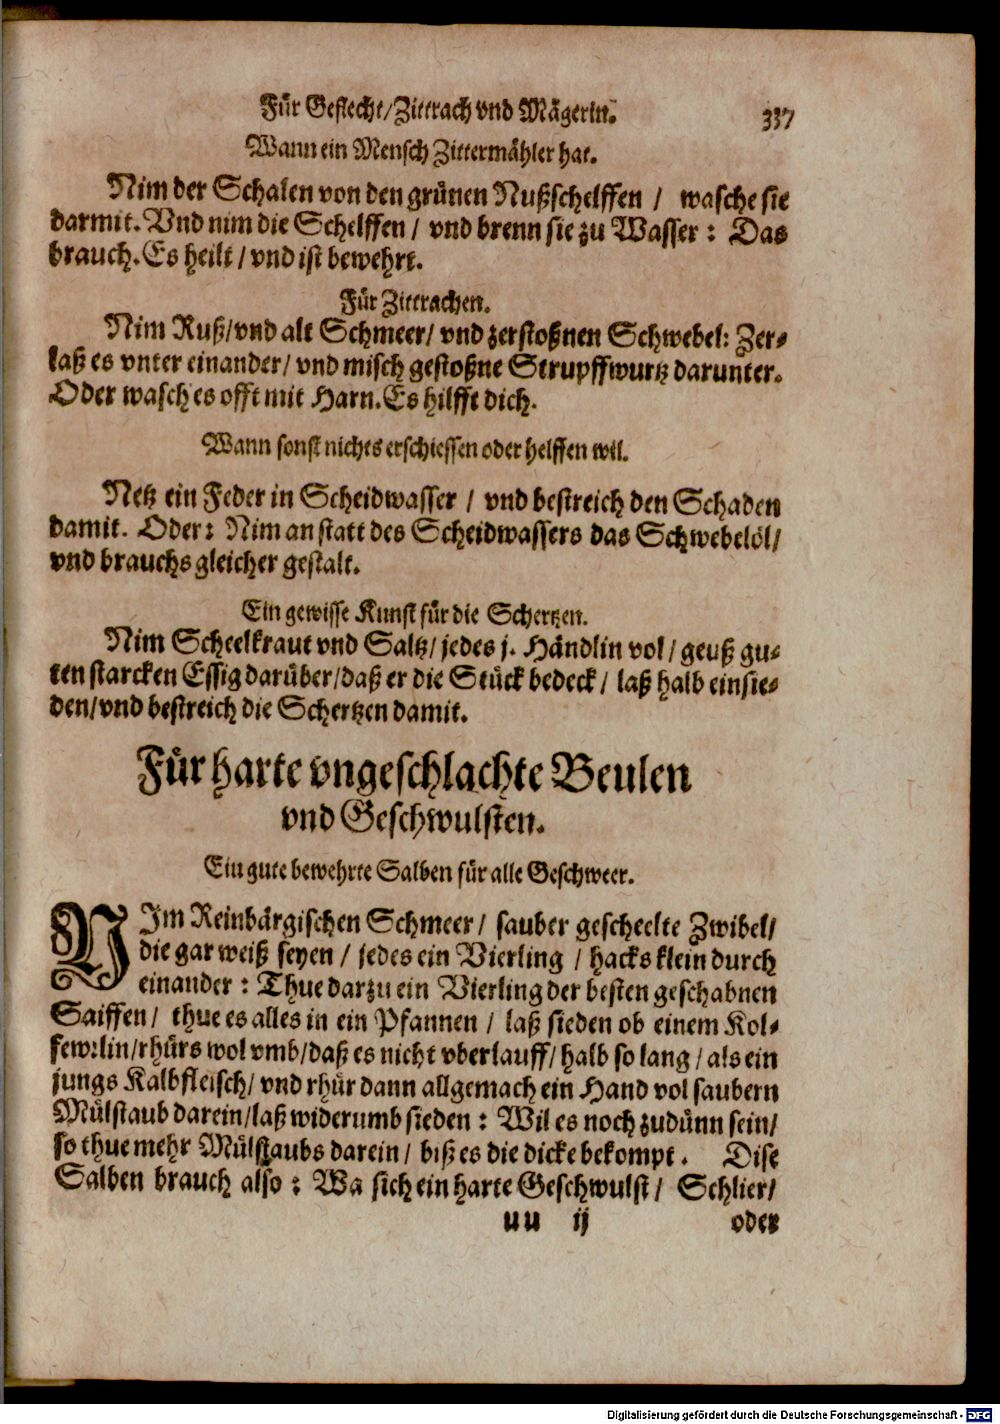 Für Geflecht/Zittrach vnd Mägerin. 337
Wann ein Mensch Zittermähler hat.
Nim der Schalen von den grünen Nußschelffen / wasche sie
darmit. Vnd nim die Schelffen / vnd brenn sie zu Wasser : Das
brauch. Es heilt / vnd ist bewehrt.
Für Zittrachen.
Nim Ruß/vnd alt Schmeer/ vnd zerstoßnen Schwebel: Zer-
laß es vnter einander/ vnd misch gestoßne Strupffwurtz darunter.
Oder wasch es offt mit Harn. Es hilfft dich.
Wann sonst nichts erschiessen oder helffen wil.
Netz ein Feder in Scheidwasser / vnd bestreich den Schaden
damit. Oder: Nim an statt des Scheidwassers das Schwebelöl/
vnd brauchs gleicher gestalt.
Ein gewisse Kunst für die Schertzen.
Nim Scheelkraut vnd Saltz/ jedes j. Händlin vol / geuß gu-
ten starcken Essig darüber/daß er die Stück bedeck / laß halb einsie-
den/vnd bestreich die Schertzen damit.
Für harte vngeschlachte Beulen
vnd Geschwulsten.
Ein gute bewehrte Salben für alle Geschweer.
NIm Reinbärgischen Schmeer / sauber gescheelte Zwibel/
die gar weiß seyen / jedes ein Vierling / hacks klein durch
einander : Thue darzu ein Vierling der besten geschabnen
Saiffen / thue es alles in ein Pfannen / laß sieden ob einem Kol-
fewrlin/rhürs wol vmb/daß es nicht vberlauff/ halb so lang / als ein
jungs Kalbfleisch/ vnd rhür dann allgemach ein Hand vol saubern
Mülstaub darein/laß widerumb sieden : Wil es noch zu dünn sein/
so thue mehr Mülstaubs darein / biß es die dicke bekompt. Dise
Salben brauch also : Wa sich ein harte Geschwulst / Schlier/
uu ij oder
Digitalisierung gefördert durch die Deutsche Forschungsgemeinschaft - DFG